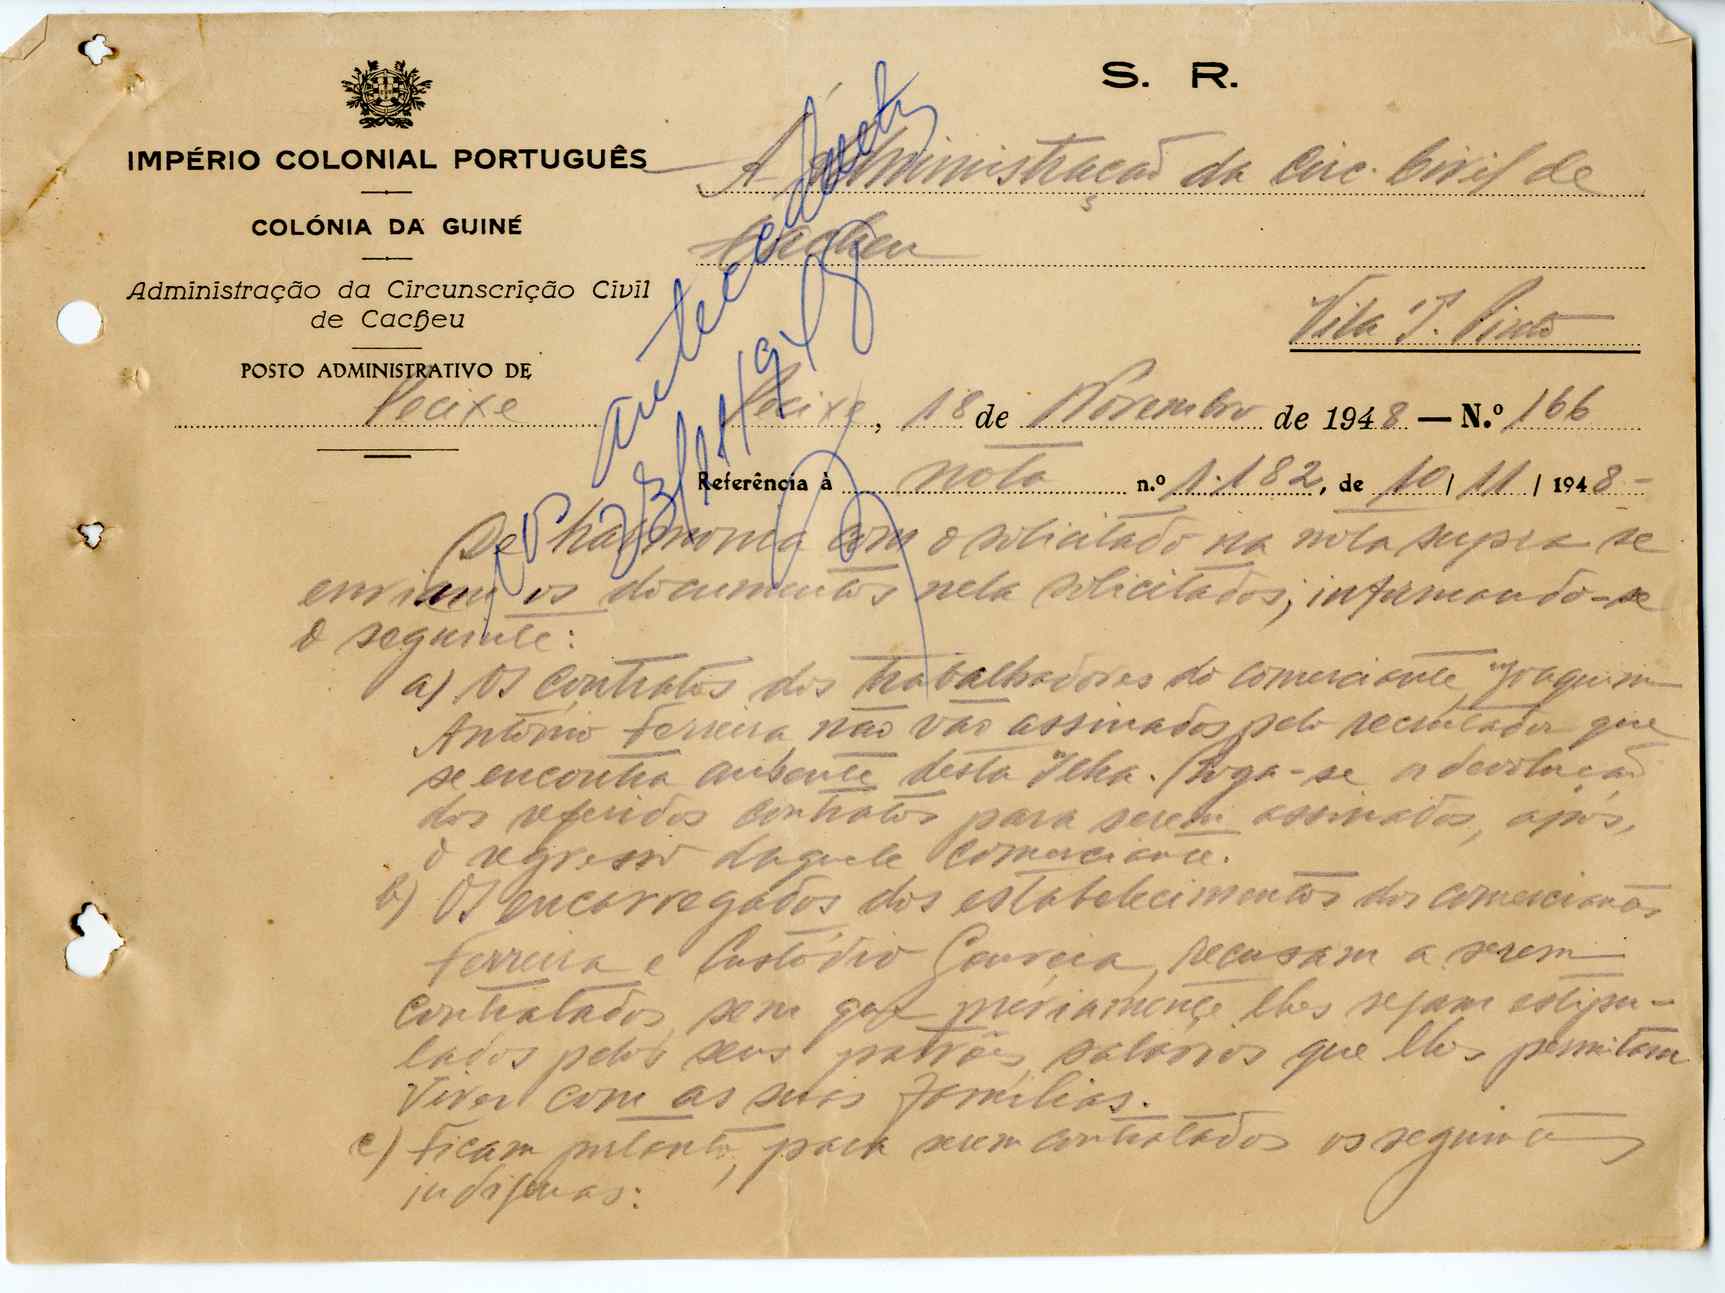 S. R.
IMPÉRIO COLONIAL PORTUGUÊS
COLÓNIA DA GUINÉ
Administração da Circunscrição Civil
de Cacheu
POSTO ADMINISTRATIVO DE
Pecixe
Á Administração da Circ. Civil de
Cacheu
Vila T. Pinto
Pecixe, 18 de Novembro de 1948 — N.º 166
Referência à nota n.º 1.182, de 10/11/1948-
Aos antecedentes
23/11/1948
De harmonia com o solicitado na nota supra se
enviam os documentos nela solicitados, informando-se
o seguinte:
a) Os contratos dos trabalhadores do comerciante Joaquim
António Ferreira não vão assinados pelo recrutador que
se encontra ausente desta Ilha. Roga-se a devolução
dos referidos contratos para serem assinados, após,
o regresso daquele comerciante.
b) Os encarregados dos estabelecimentos dos comerciantes
Ferreira e Custódio Gouveia, recusam a serem
contratados, sem que préviamente lhes sejam estipu-
lados pelos seus patrões, salarios que lhes permitam
viver com as suas famílias.
c) Ficam portanto, para serem contratados os seguintes
indígenas: